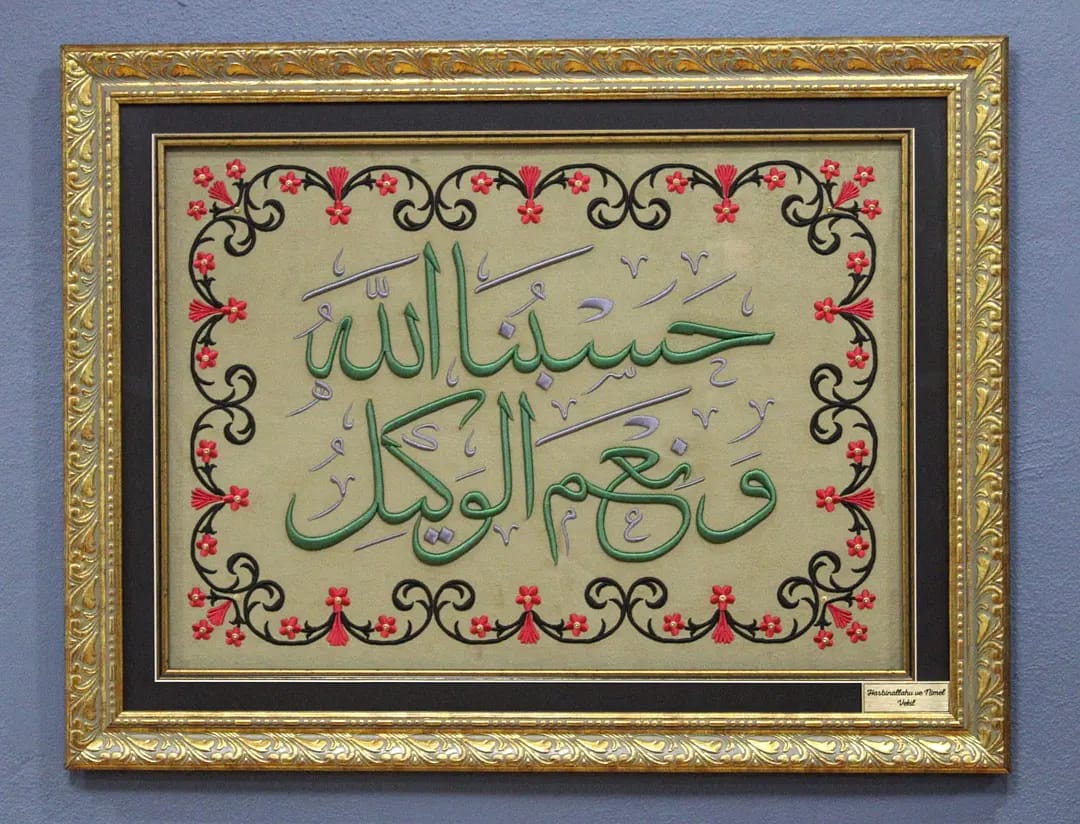 حسبنا الله
ونعم الوكيل
Hasbinallahu ve Nimel
Vekil